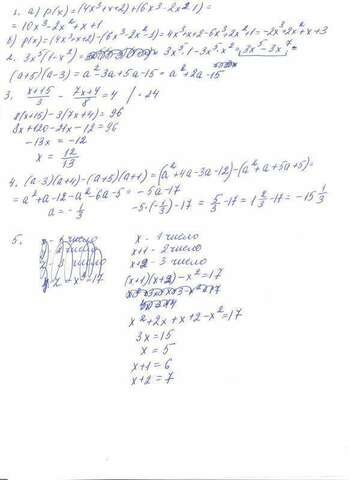 1. а) p(x) = (4x³+x+2)+(6x³-2x²-1) =
= 10x³-2x²+x+1
б) p(x) = (4x³+x+2)-(6x³-2x²-1) = 4x³+x+2-6x³+2x²+1 = -2x³+2x²+x+3
2. 3x⁵(1-x²) = 3x⁵·1-3x⁵·x² = 3x⁵-3x⁷
(a+5)(a-3) = a²-3a+5a-15 = a²+2a-15
3. (x+15)/3 - (7x+4)/8 = 4 / ·24
8(x+15)-3(7x+4) = 96
8x+120-21x-12 = 96
-13x = -12
x = 12/13
4. (a-3)(a+4)-(a+5)(a+1) = (a²+4a-3a-12)-(a²+a+5a+5) =
= a²+a-12-a²-6a-5 = -5a-17
a = -1/3 -5·(-1/3)-17 = 5/3-17 = 1 2/3-17 = -15 1/3
5. x - 1 число
x+1 - 2 число
x+2 - 3 число
(x+1)(x+2)-x² = 17
x²+2x+x+2-x² = 17
3x = 15
x = 5
x+1 = 6
x+2 = 7